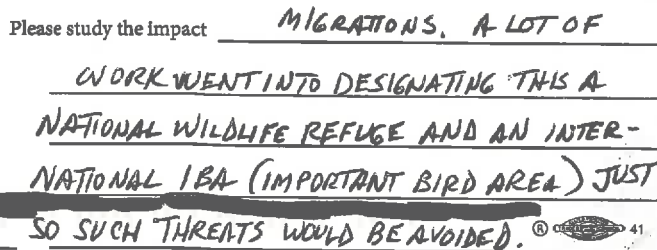 Please study the impact MIGRATIONS. A LOT OF
WORK WENT INTO DESIGNATING THIS A
NATIONAL WILDLIFE REFUGE AND AN INTER-
NATIONAL IBA (IMPORTANT BIRD AREA) JUST
SO SUCH THREATS WOULD BE AVOIDED. ® 41